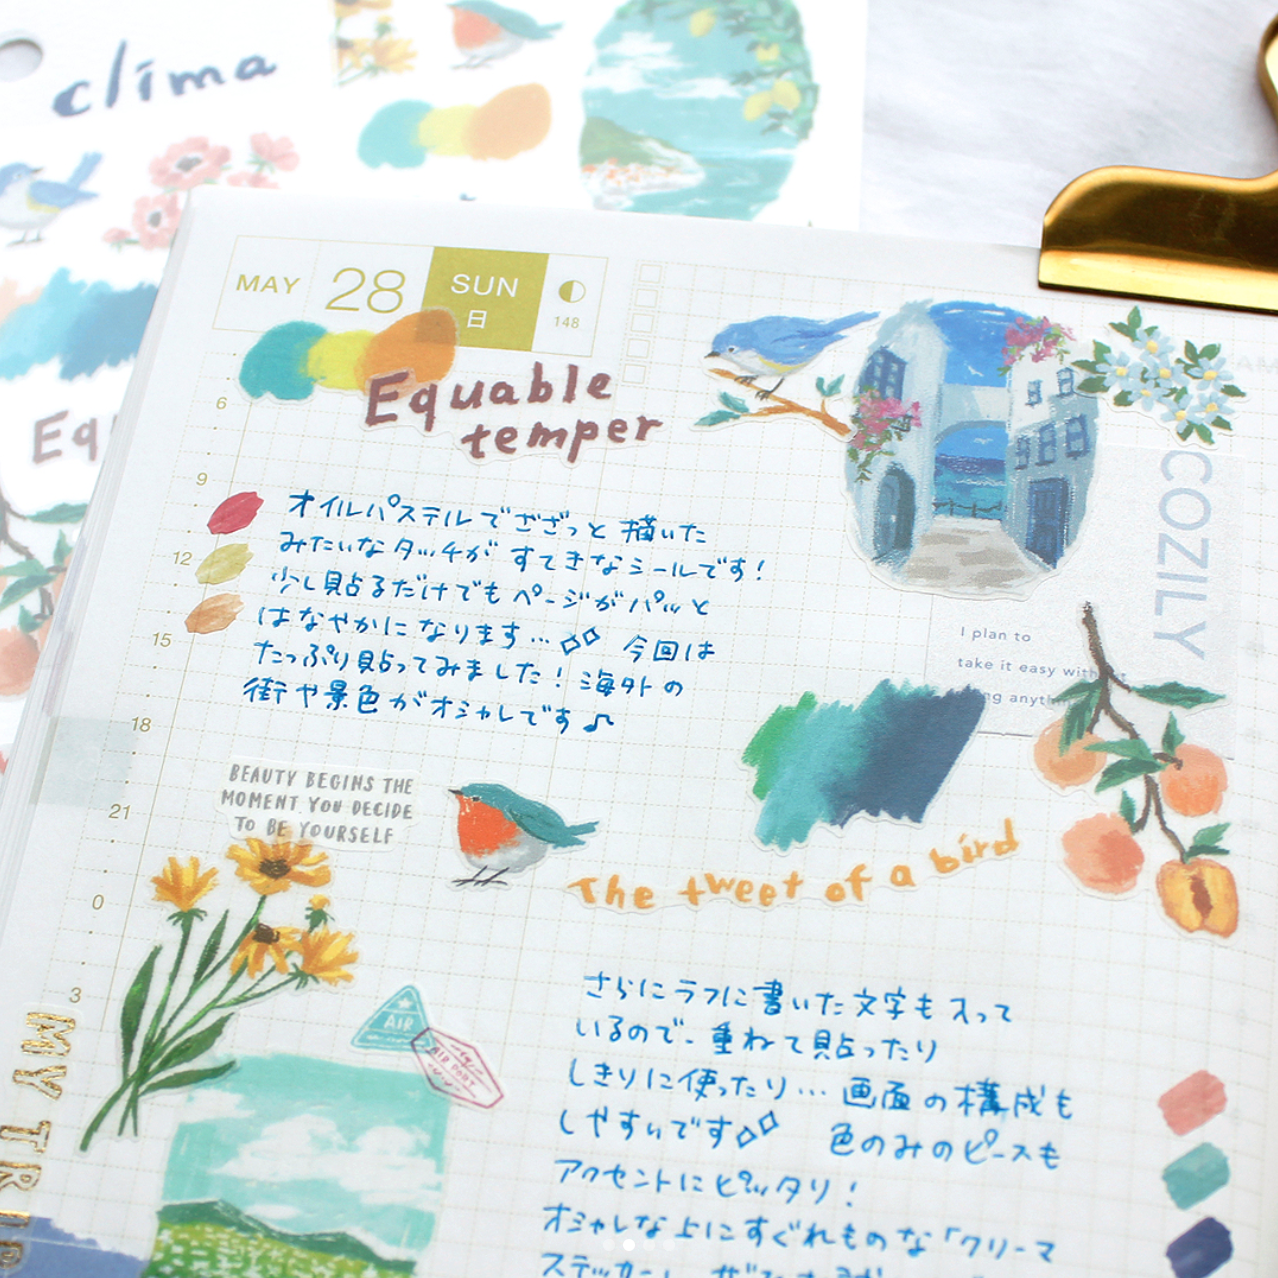 clima
MAY 28 SUN
日
148
Equable
temper
6
9
12
15
18
21
0
3
オイルパステルでざざっと描いた
みたいなタッチがすてきなシールです!
少し貼るだけでもページがパッと
はなやかになります… 今回は
たっぷり貼ってみました!海外の
街や景色がオシャレです♪
COZILY
I plan to
take it easy
BEAUTY BEGINS THE
MOMENT YOU DECIDE
TO BE YOURSELF
The tweet of a bird
AIR
AIR PORT
MY TRIP
さらにラフに書いた文字も入って
いるので、重ねて貼ったり
しきりに使ったり… 画面の構成も
しやすいです 色のみのピースも
アクセントにピッタリ!
オシャレな上にすぐれものな「クリーマ
ステッカー